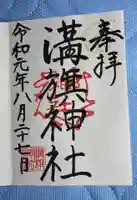 奉拝
溝旗神社
令和元年八月二十七日